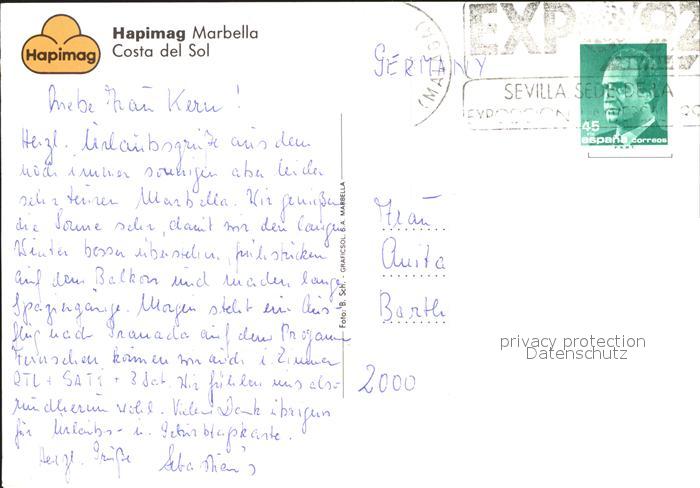 Hapimag
Hapimag Marbella
Costa del Sol
GERMANY
EXPO'92
SEVILLA SEDE DE LA
EXPOSICION
45
españa correos
Liebe Frau Kern!
Herzl. Urlaubsgrüße aus dem
noch immer sonnigen aber leider
sehr teuren Marbella. Wir genießen
die Sonne sehr, damit wir den langen
Winter besser überstehen, frühstücken
auf dem Balkon und machen lange
Spaziergänge. Morgen steht ein Aus-
flug nach Granada auf dem Programm
Fernsehen können wir auch i. Zimmer
RTL + SAT1 + 3 Sat. Wir fühlen uns also
rundherum wohl. Vielen Dank übrigens
für Urlaubs- u. Geburtstagskarte.
Herzl. Grüße Sebastian's
Foto: B. Sch. - GRAFICSOL, S.A. MARBELLA
Frau
Anita
Barth
2000
privacy protection
Datenschutz